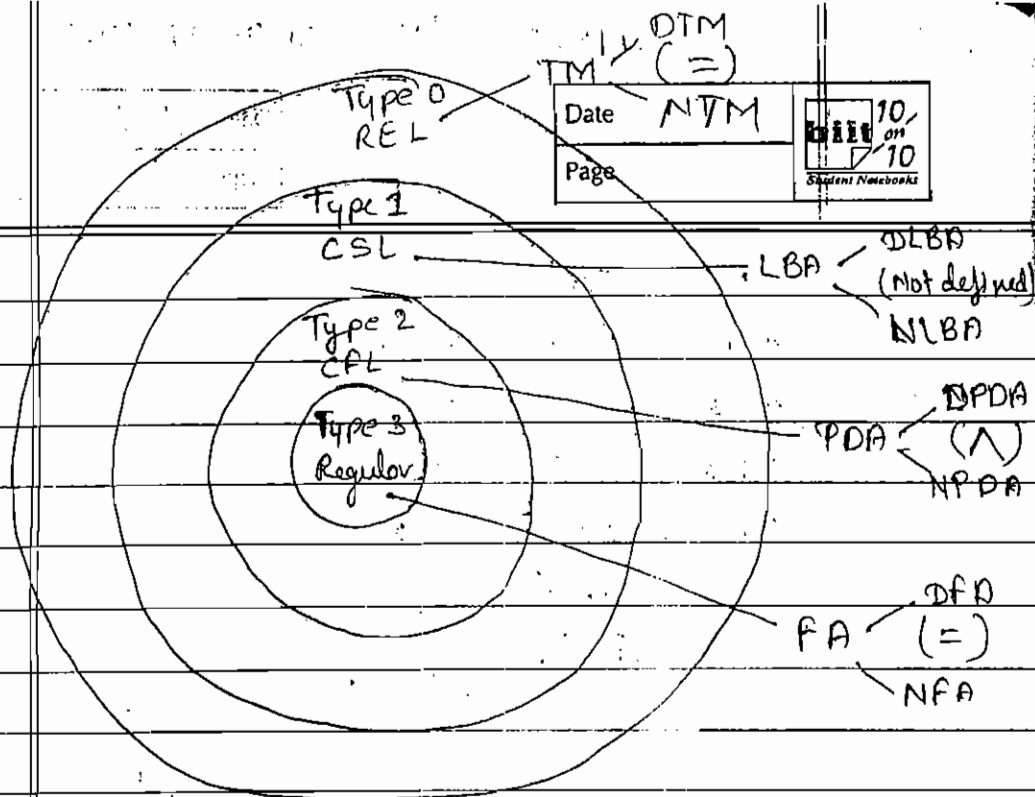 DTM
TM (=)
NTM
Date
Page
bilt 10 on 10
Student Notebooks
Type 0
REL
Type 1
CSL
LBA
DLBA
(Not defined)
NLBA
Type 2
CFL
PDA
DPDA
(∧)
NPDA
Type 3
Regular
FA
DFA
(=)
NFA